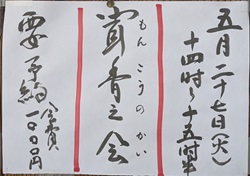 五月二十七日(火)
十四時~十五時半
聞香之会
もんこうのかい
要予約
会費一〇〇〇円